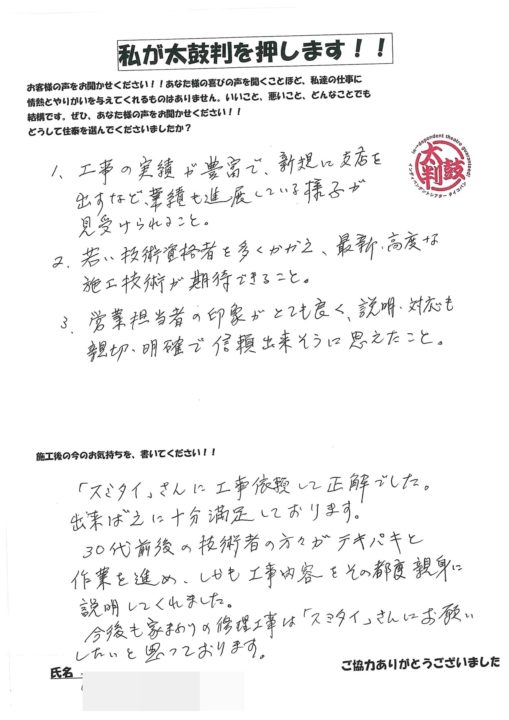 私が太鼓判を押します！！
お客様の声をお聞かせください！！あなた様の喜びの声を聞くことほど、私達の仕事に
情熱とやりがいを与えてくれるものはありません。いいこと、悪いこと、どんなことでも
結構です。ぜひ、あなた様の声をお聞かせください！！
どうして住泰を選んでくださいましたか？
太鼓判
1、工事の実績が豊富で、新規に支店を
出すなど、業績も進展している様子が
見受けられること。
2、若い技術資格者を多くかかえ、最新、高度な
施工技術が期待できること。
3、営業担当者の印象がとても良く、説明・対応も
親切・明確で信頼出来そうに思えたこと。
施工後の今のお気持ちを、書いてください！！
「スミタイ」さんに工事依頼して正解でした。
出来ばえに十分満足しております。
30代前後の技術者の方々がテキパキと
作業を進め、しかも工事内容をその都度親身に
説明してくれました。
今後も家まわりの修理工事は「スミタイ」さんにお願い
したいと思っております。
氏名
ご協力ありがとうございました